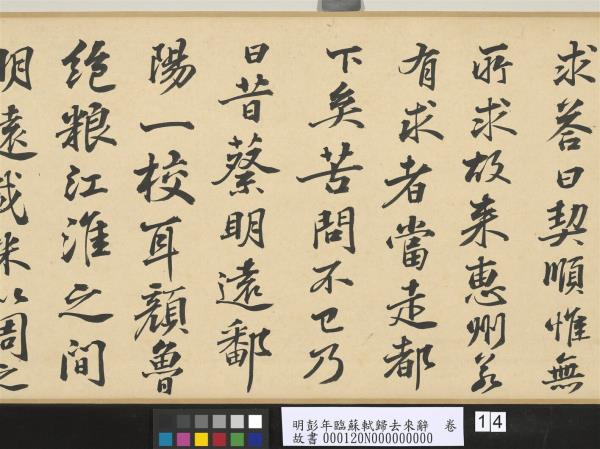 求荅曰契順惟無
所求故来惠州若
有求者當走都
下矣苦問不已乃
曰昔蔡明遠鄱
陽一校耳顔魯
公絶粮江淮之間
明遠載米以周之
明彭年臨蘇軾歸去來辭 卷
故書000120N000000000
14